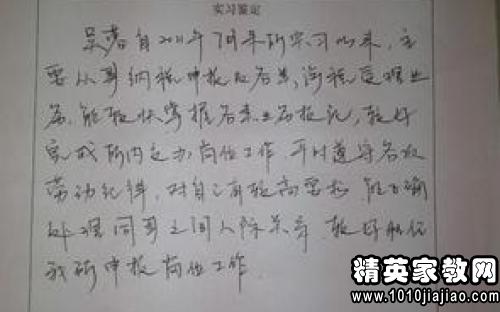 实习鉴定
吴蓉自2011年7月来所实习以来,主
要从事纳税申报及各类涉税受理业
务,能较快掌握各类业务技能,较好
完成所内交办岗位工作,平时遵守各项
劳动纪律,对自己有较高要求,能正确
处理同事之间人际关系,较好胜任
我所申报岗位工作。
精英家教网
www.1010jiajiao.com